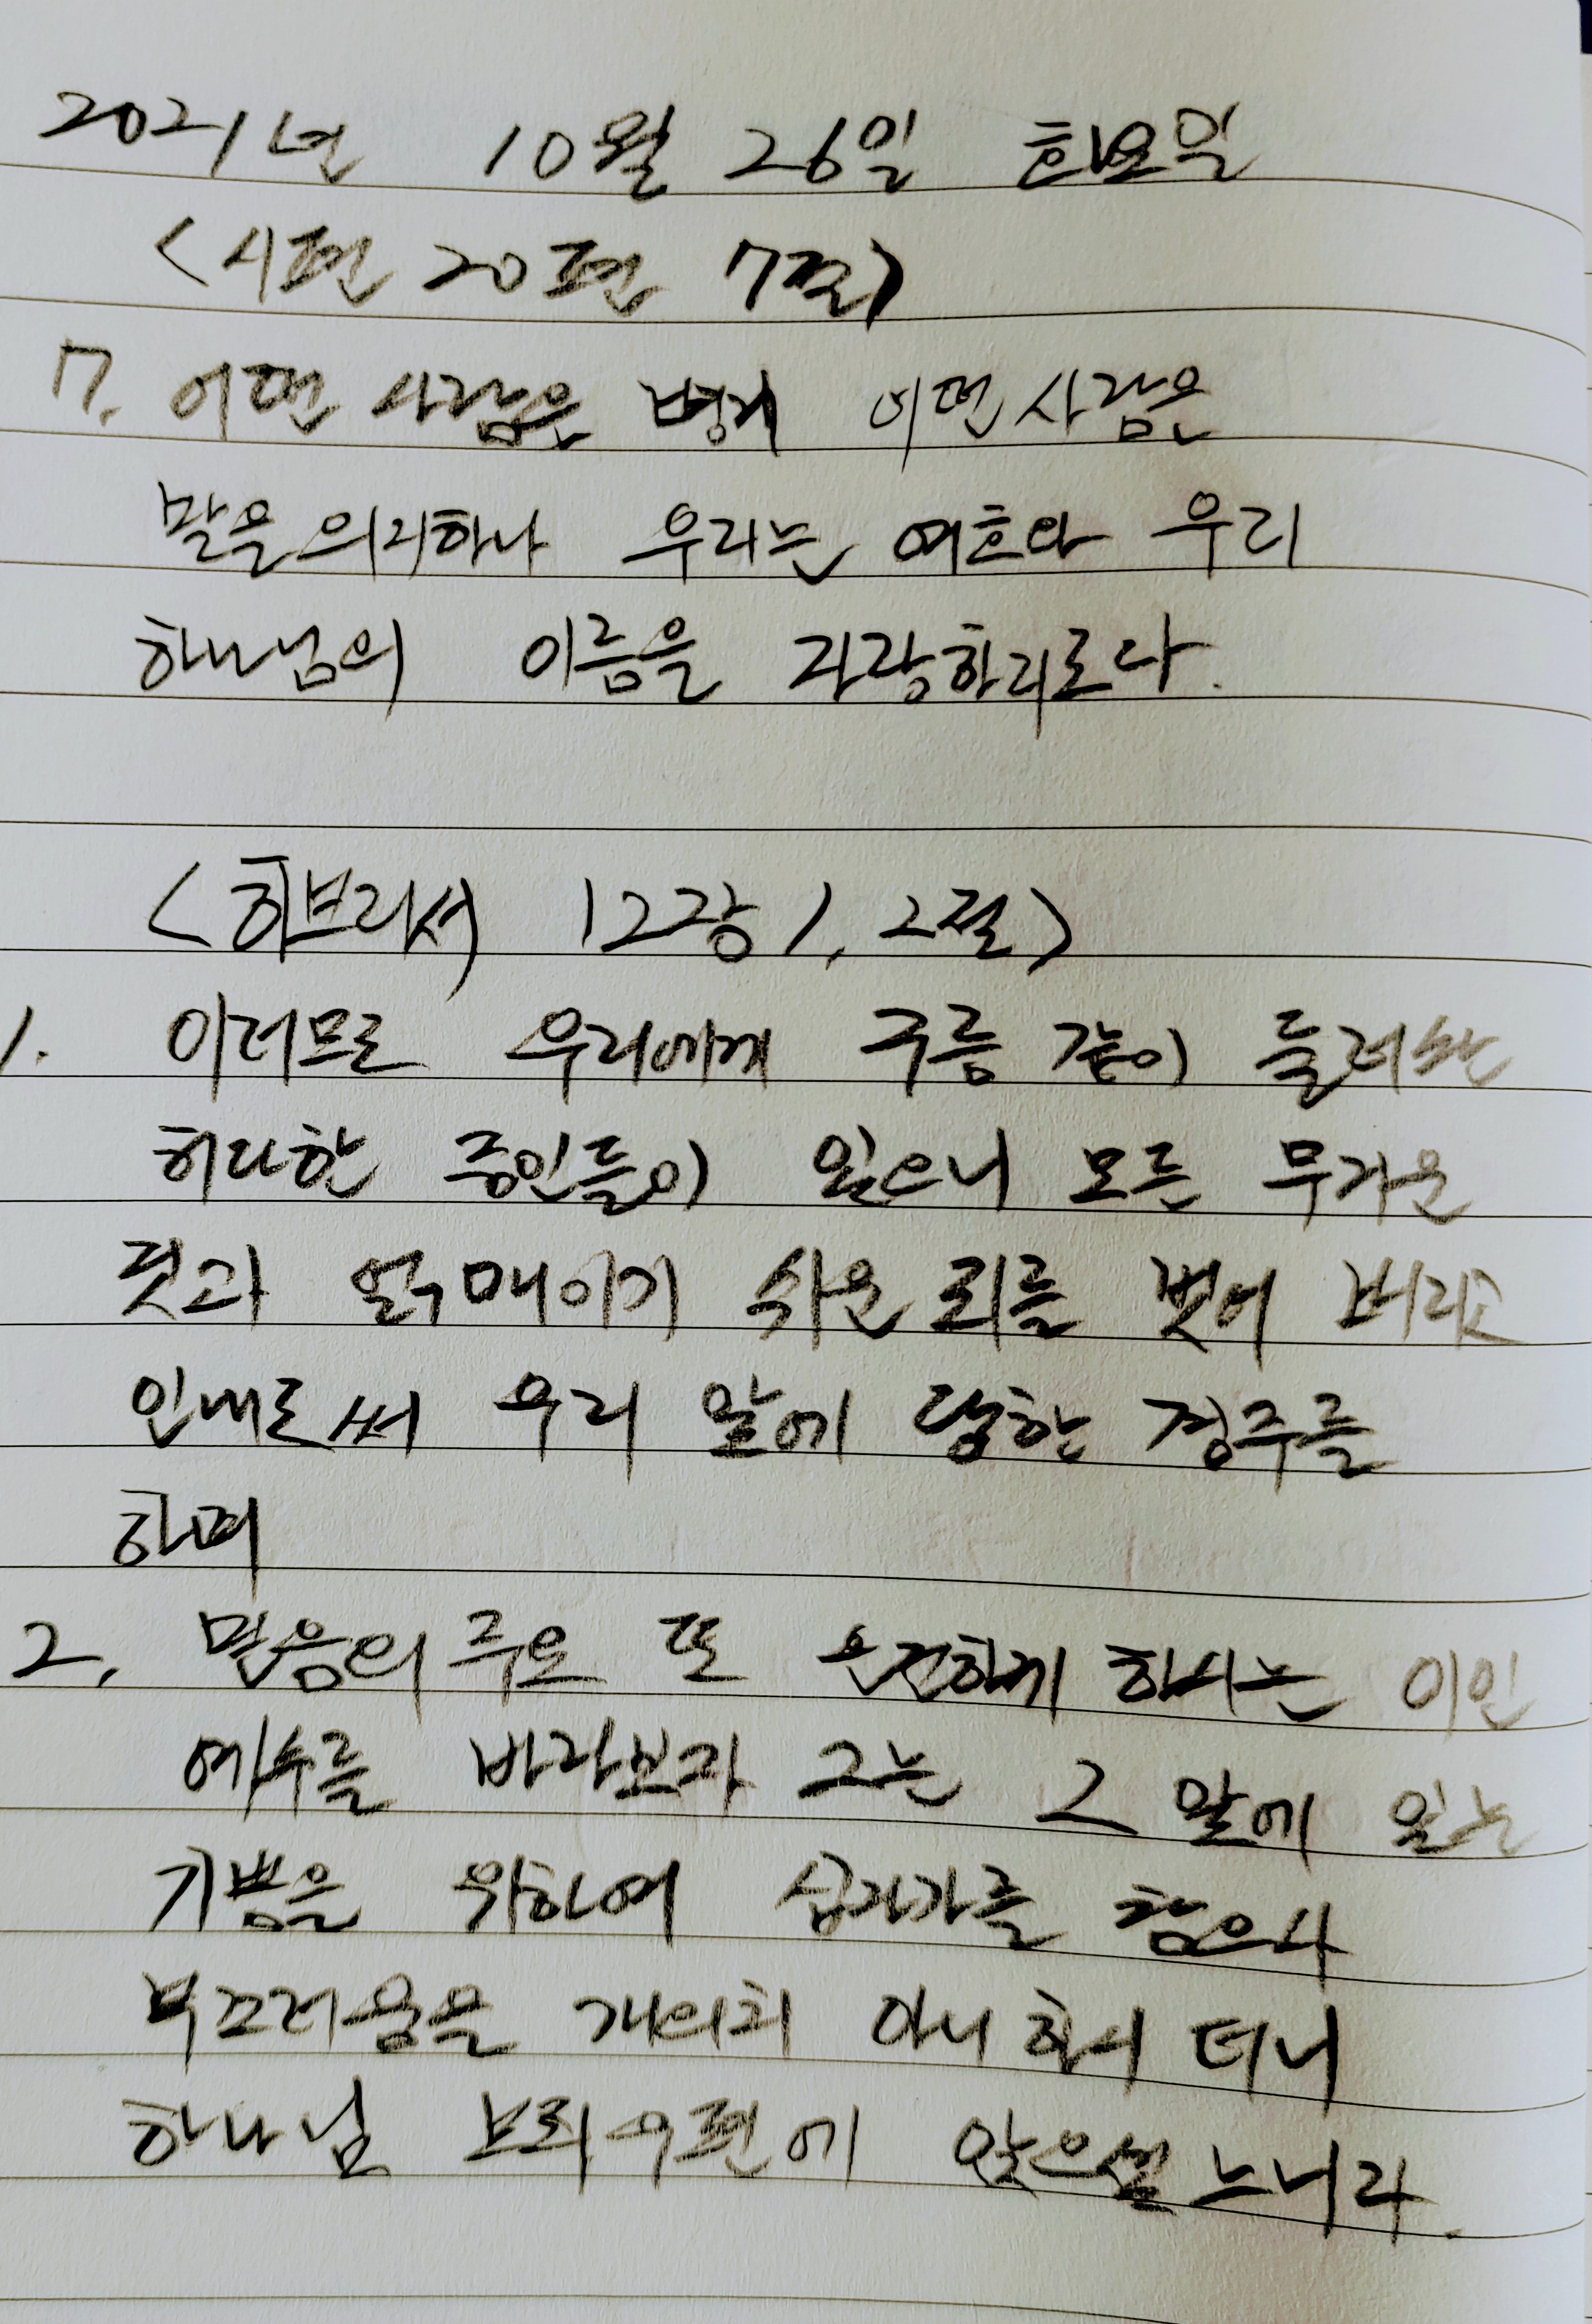 2021년 10월 26일 화요일
<시편 20편 7절>
7. 어떤 사람은 병거 어떤 사람은
말을 의지하나 우리는 여호와 우리
하나님의 이름을 자랑하리로다.
<히브리서 12장 1, 2절>
1. 이러므로 우리에게 구름 같이 둘러싼
허다한 증인들이 있으니 모든 무거운
것과 얽매이기 쉬운 죄를 벗어 버리고
인내로써 우리 앞에 당한 경주를
하며
2. 믿음의 주요 또 온전하게 하시는 이인
예수를 바라보자 그는 그 앞에 있는
기쁨을 위하여 십자가를 참으사
부끄러움을 개의치 아니 하시 더니
하나님 보좌 우편에 앉으셨느니라.